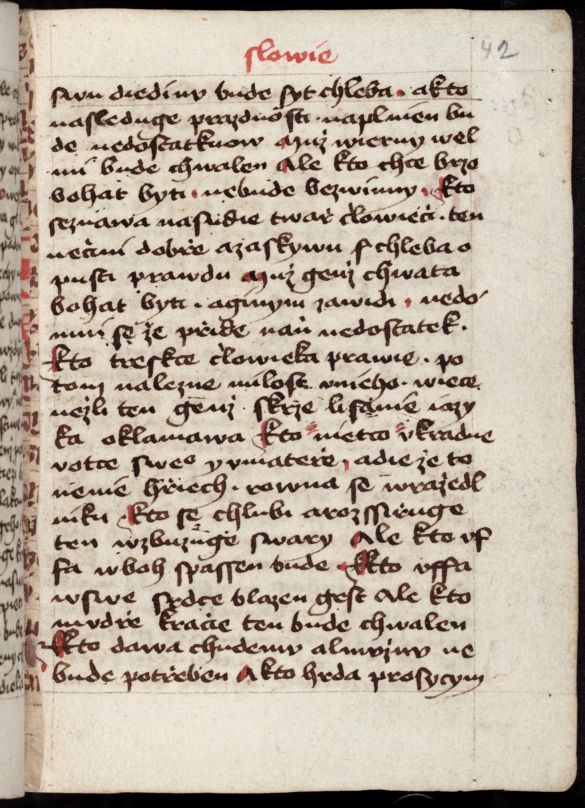 slowie
42
swu diediny bude syt chleba · akto
nasleduge prazdnosti · naplnien bu
de nedostatkuow Muz wierny wel
mi bude chwalen Ale kto chce brzo
bohat byti · nebude bezwinny · Kto
seznawa nasudie twar človieči · ten
nečini dobře azaskywu chleba o
pusti prawdu Muz genz chwata
bohat byti · aginym zawidi · nedo
mni se že přide naň nedostatek ·
Kto treskce človieka prawie · po
tom nalezne milost vnieho · wiece
nežli ten genz skrže lisanie iazy
ka oklamawa Kto nietco vkradne
votce sweo y vmateře · adie že to
nenie hřiech · rowna se wražedl
niku Kto se chlubi arozssiřuge
ten wzbuzuge swary Ale kto vf
fa wboh spassen bude · Kto vffa
wswe srdce blazen gest Ale kto
mudře kračie ten bude chwalen
Kto dawa chudemu almuznu ne
bude potřeben A kto hrda prosycym